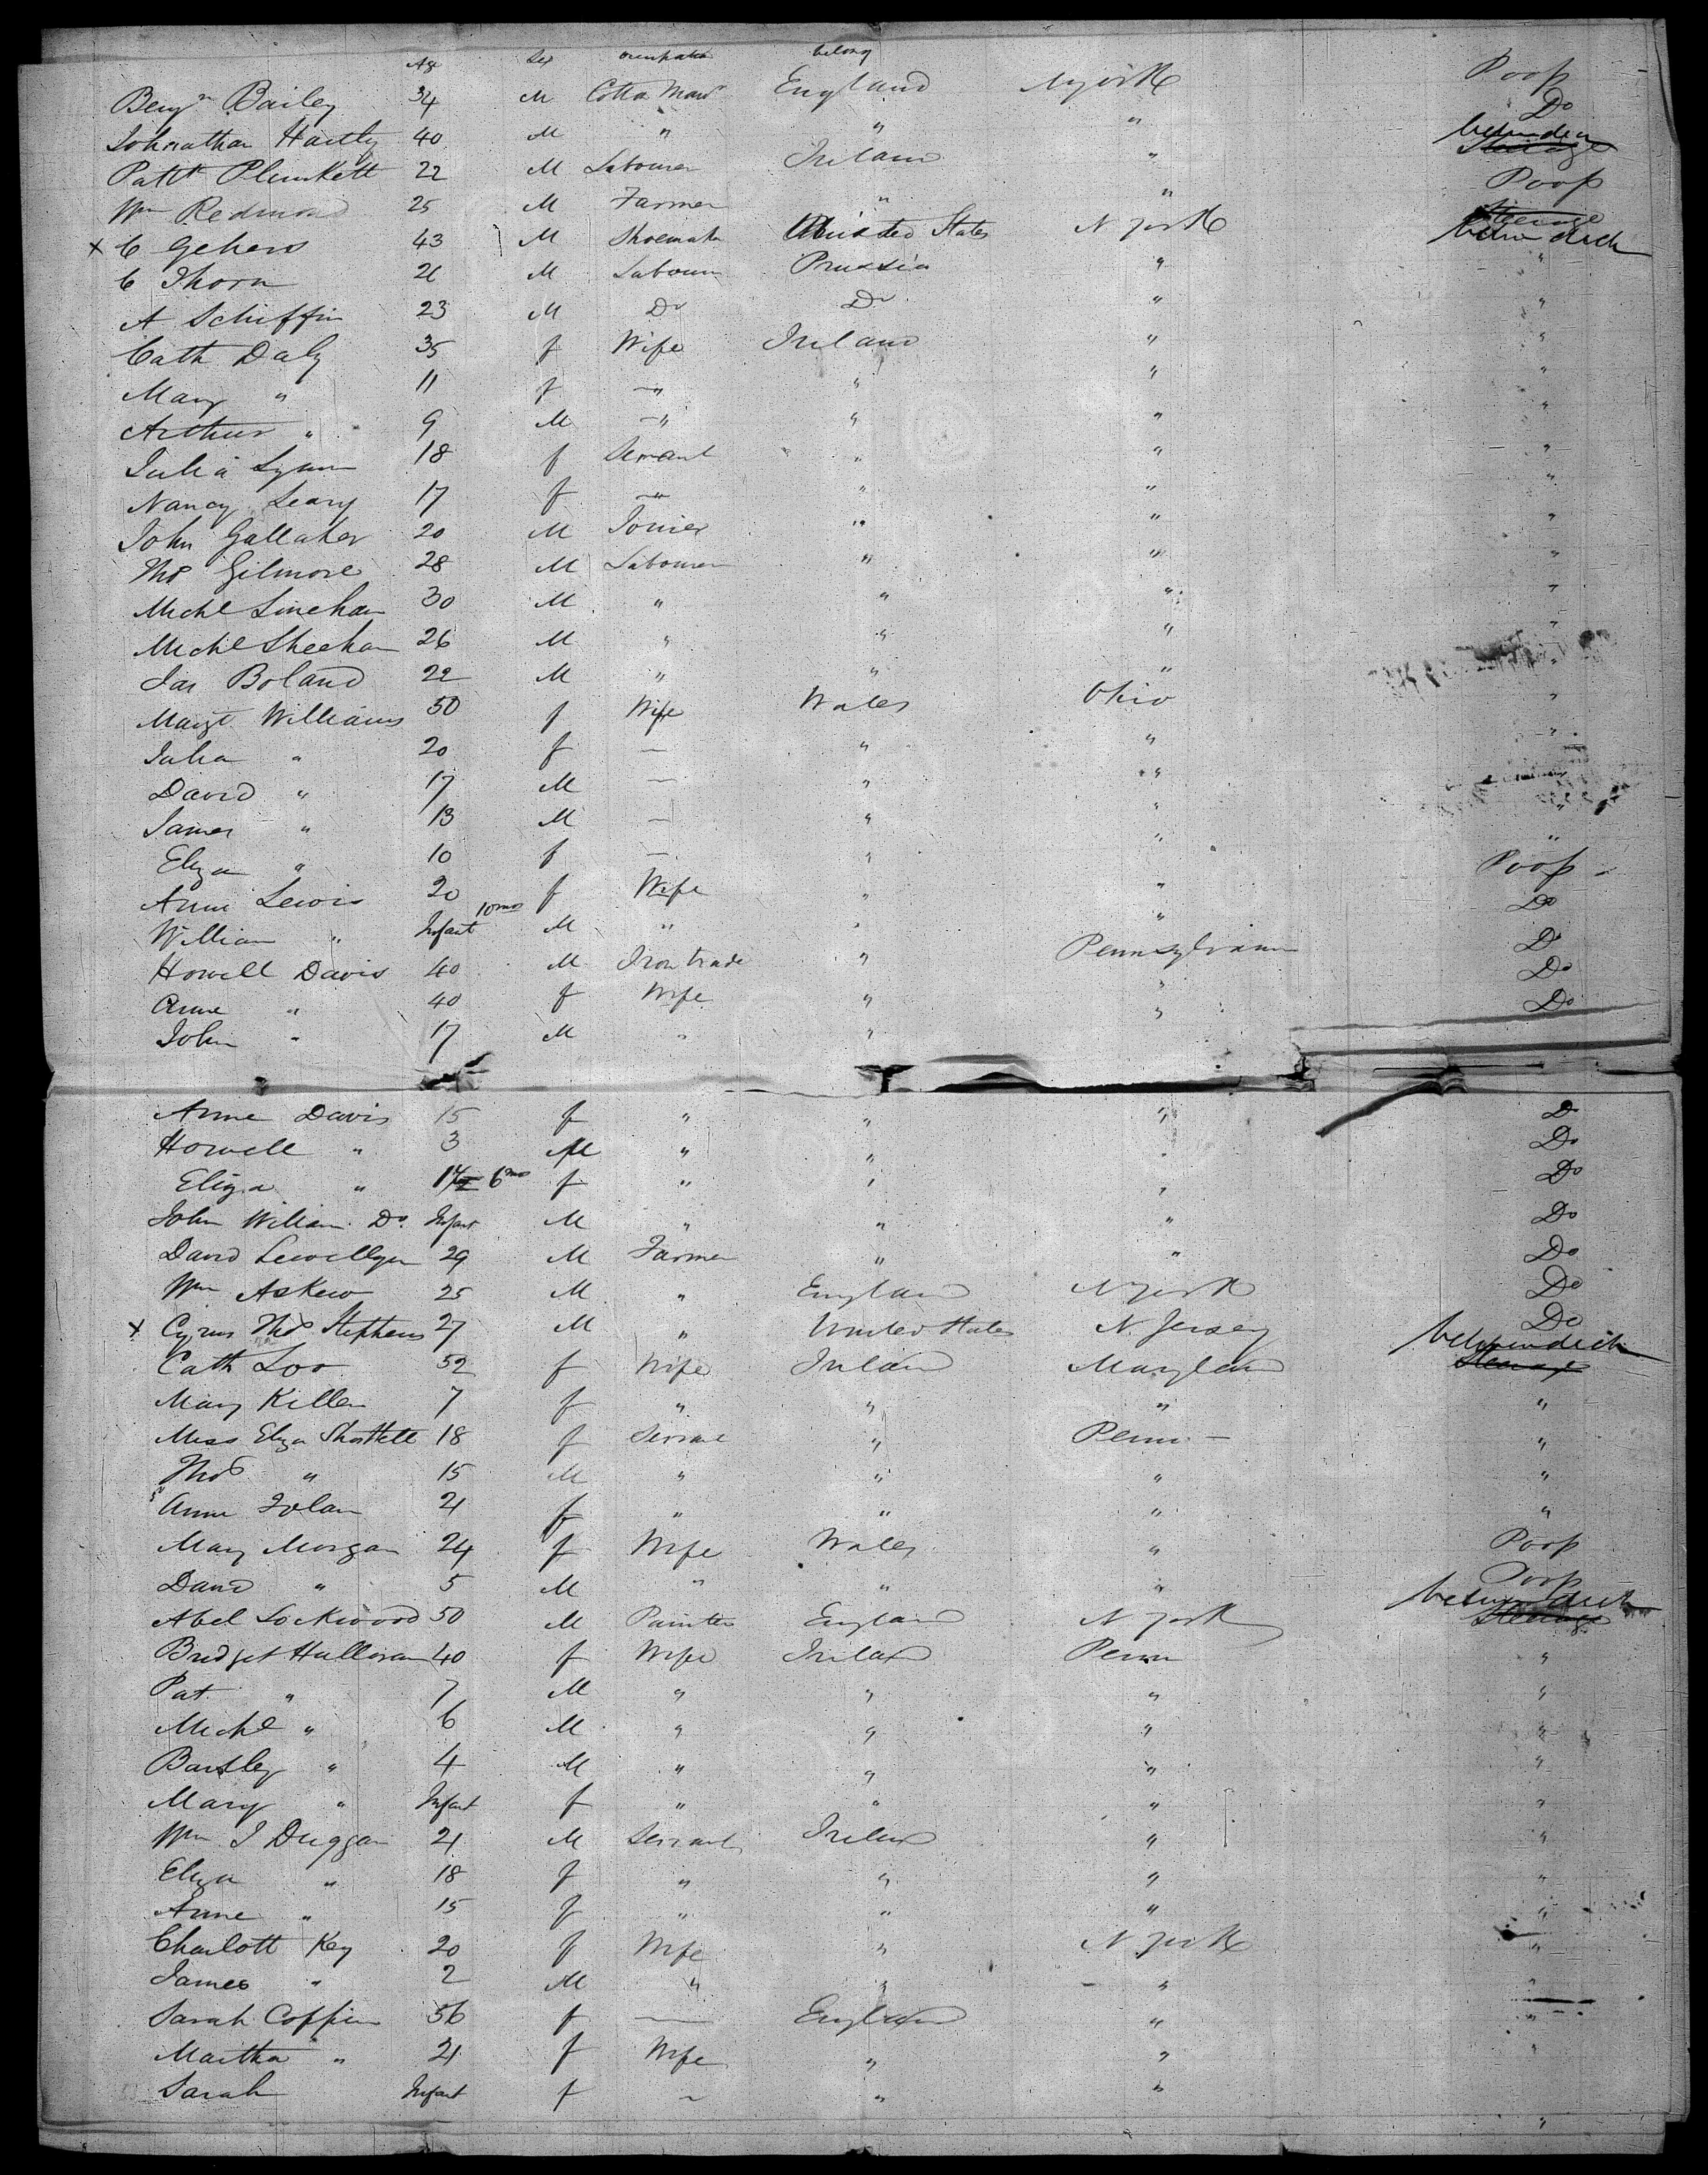 Ag Sex occupation belong
Benjn Bailey 34 M Cotton Manr England N york Poop
Johnathan Hartly 40 M " " " Do
Patk Plunkett 22 M Labourer Ireland " between deck Steerage
Wm Redmond 25 M Farmer " " Poop
x C Gehers 43 M Shoemaker United States N york Steerage between deck
C Thorn 21 M Labourer Prussia " "
A Schiffin 23 M Do Do " "
Cath Daly 35 f Wife Ireland " "
Mary " 11 f " " " "
Arthur " 9 M " " " "
Julia Lynn 18 f Servant " " "
Nancy Leary 17 f " " " "
John Gallaher 20 M Joiner " " "
Thos Gilmore 28 M Labourer " " "
Michl Linehan 30 M " " " "
Michl Sheehan 26 M " " " "
Jas Boland 22 M " " " "
Margt Williams 50 f Wife Wales Ohio "
Julia " 20 f — " " "
David " 17 M — " " "
James " 13 M — " " "
Eliza " 10 f — " " "
Anne Lewis 20 f Wife " " Poop
William " Infant 10 mos M " " " Do
Howell Davis 40 M Iron trade " Pennsylvania Do
Anne " 40 f Wife " " Do
John " 17 M " " " Do
Anne Davis 15 f " " " Do
Howell " 3 M " " " Do
Eliza " 1 6mo f " " " Do
John William Do Infant M " " " Do
David Lewellyn 29 M Farmer " " Do
Wm Askew 25 M " England N york Do
x Cyrus Thos Stephens 27 M " United States N. Jersey Do
Cath Loo 52 f Wife Ireland Maryland between deck Steerage
Mary Killen 7 f " " " "
Miss Eliza Shortell 18 f Servant " Penn — "
Thos " 15 M " " " "
Anne Folan 21 f " " " "
Mary Morgan 24 f Wife Wales " Poop
David " 5 M " " " Poop
Abel Lockwood 50 M Painter England N york between deck Steerage
Bridget Halloran 40 f Wife Ireland Penn "
Pat " 7 M " " " "
Michl " 6 M " " " "
Bartley " 4 M " " " "
Mary " Infant f " " " "
Wm J Duggan 21 M Servant Ireland " "
Eliza " 18 f " " " "
Anne " 15 f " " " "
Charlott Key 20 f Wife " N york "
James " 2 M " " " "
Sarah Coffin 56 f — England " "
Martha " 21 f Wife " " "
Sarah Infant f " " " "